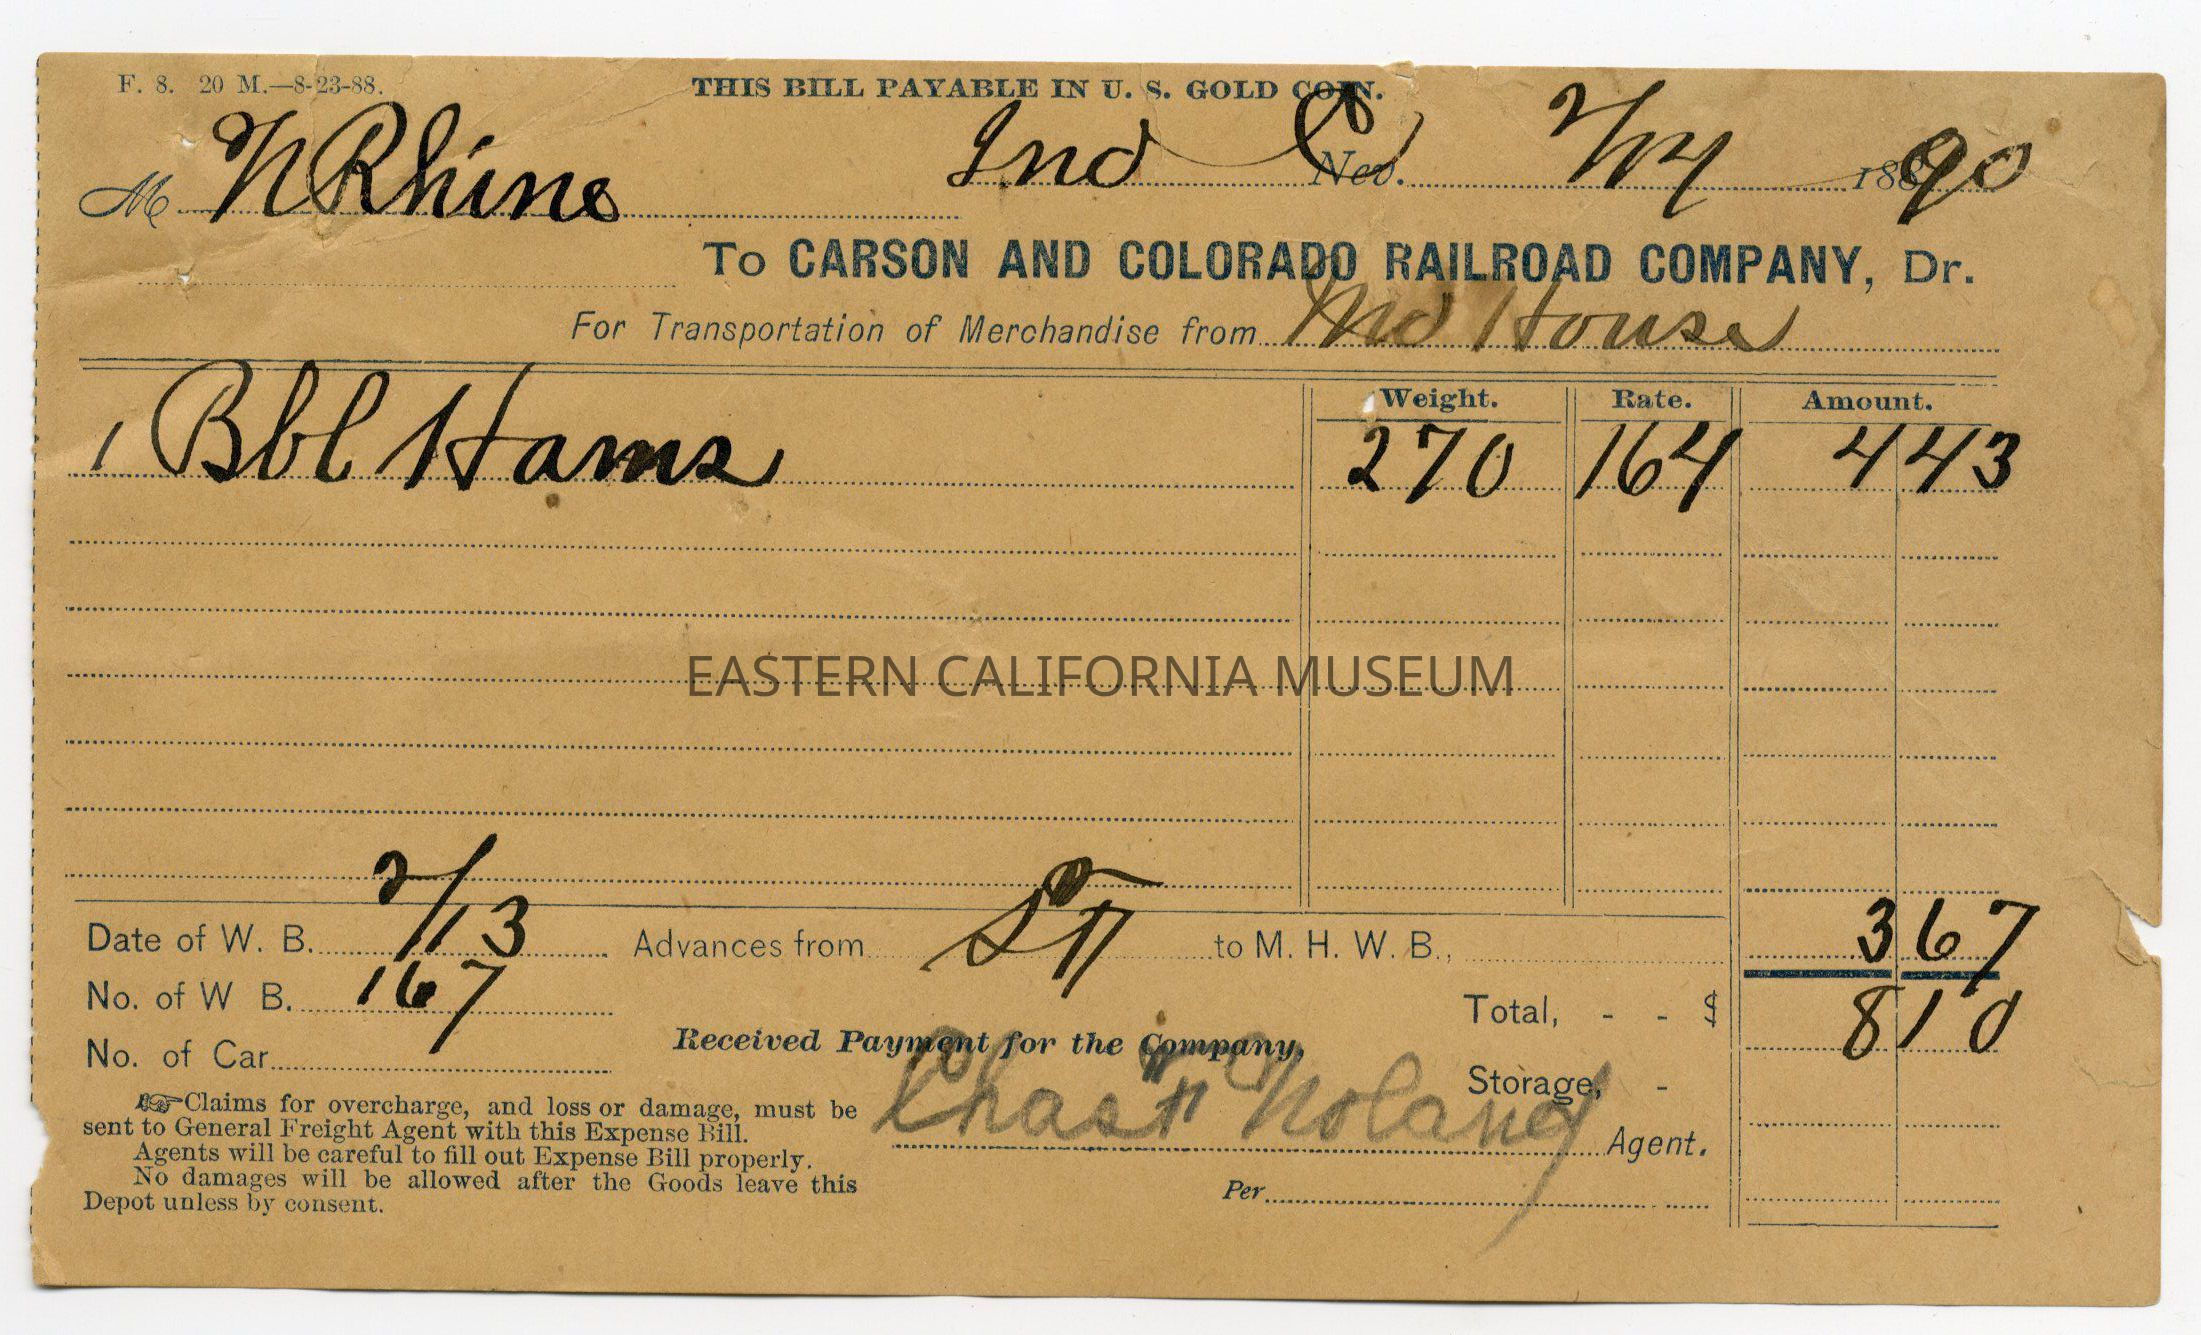 F. 8. 20 M.—8-23-88.
THIS BILL PAYABLE IN U. S. GOLD COIN.
M N Rhine Ind Nev. 188 90
To CARSON AND COLORADO RAILROAD COMPANY, Dr.
For Transportation of Merchandise from Md House
Weight. Rate. Amount.
1 Bbl Hams 270 164 4 43
EASTERN CALIFORNIA MUSEUM
Date of W. B. 2/13 Advances from to M. H. W. B., 3 67
No. of W B. 167
Total, - - $ 8 10
Received Payment for the Company,
No. of Car
Storage, -
Chas Noland Agent.
☞Claims for overcharge, and loss or damage, must be
sent to General Freight Agent with this Expense Bill.
Agents will be careful to fill out Expense Bill properly.
No damages will be allowed after the Goods leave this
Depot unless by consent.
Per